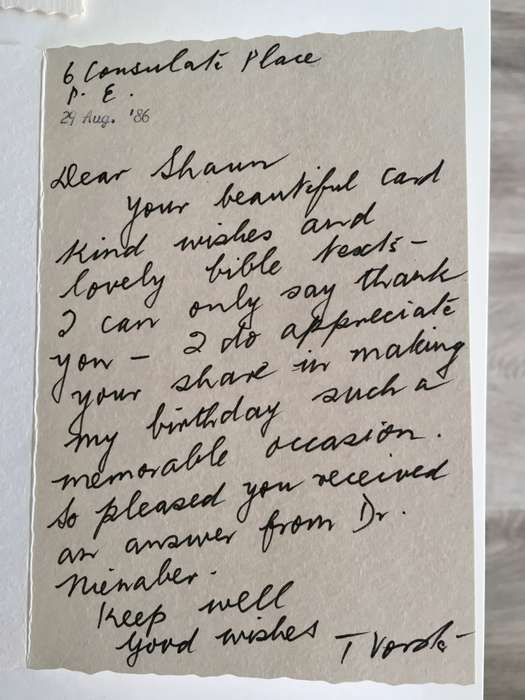 6 Consulate Place
P. E.
29 Aug. '86
Dear Shaun
Your beautiful card
kind wishes and
lovely bible texts -
I can only say thank
you - I do appreciate
your share in making
my birthday such a
memorable occasion.
So pleased you received
an answer from Dr.
Nienaber.
Keep well
Good wishes
T Vorster